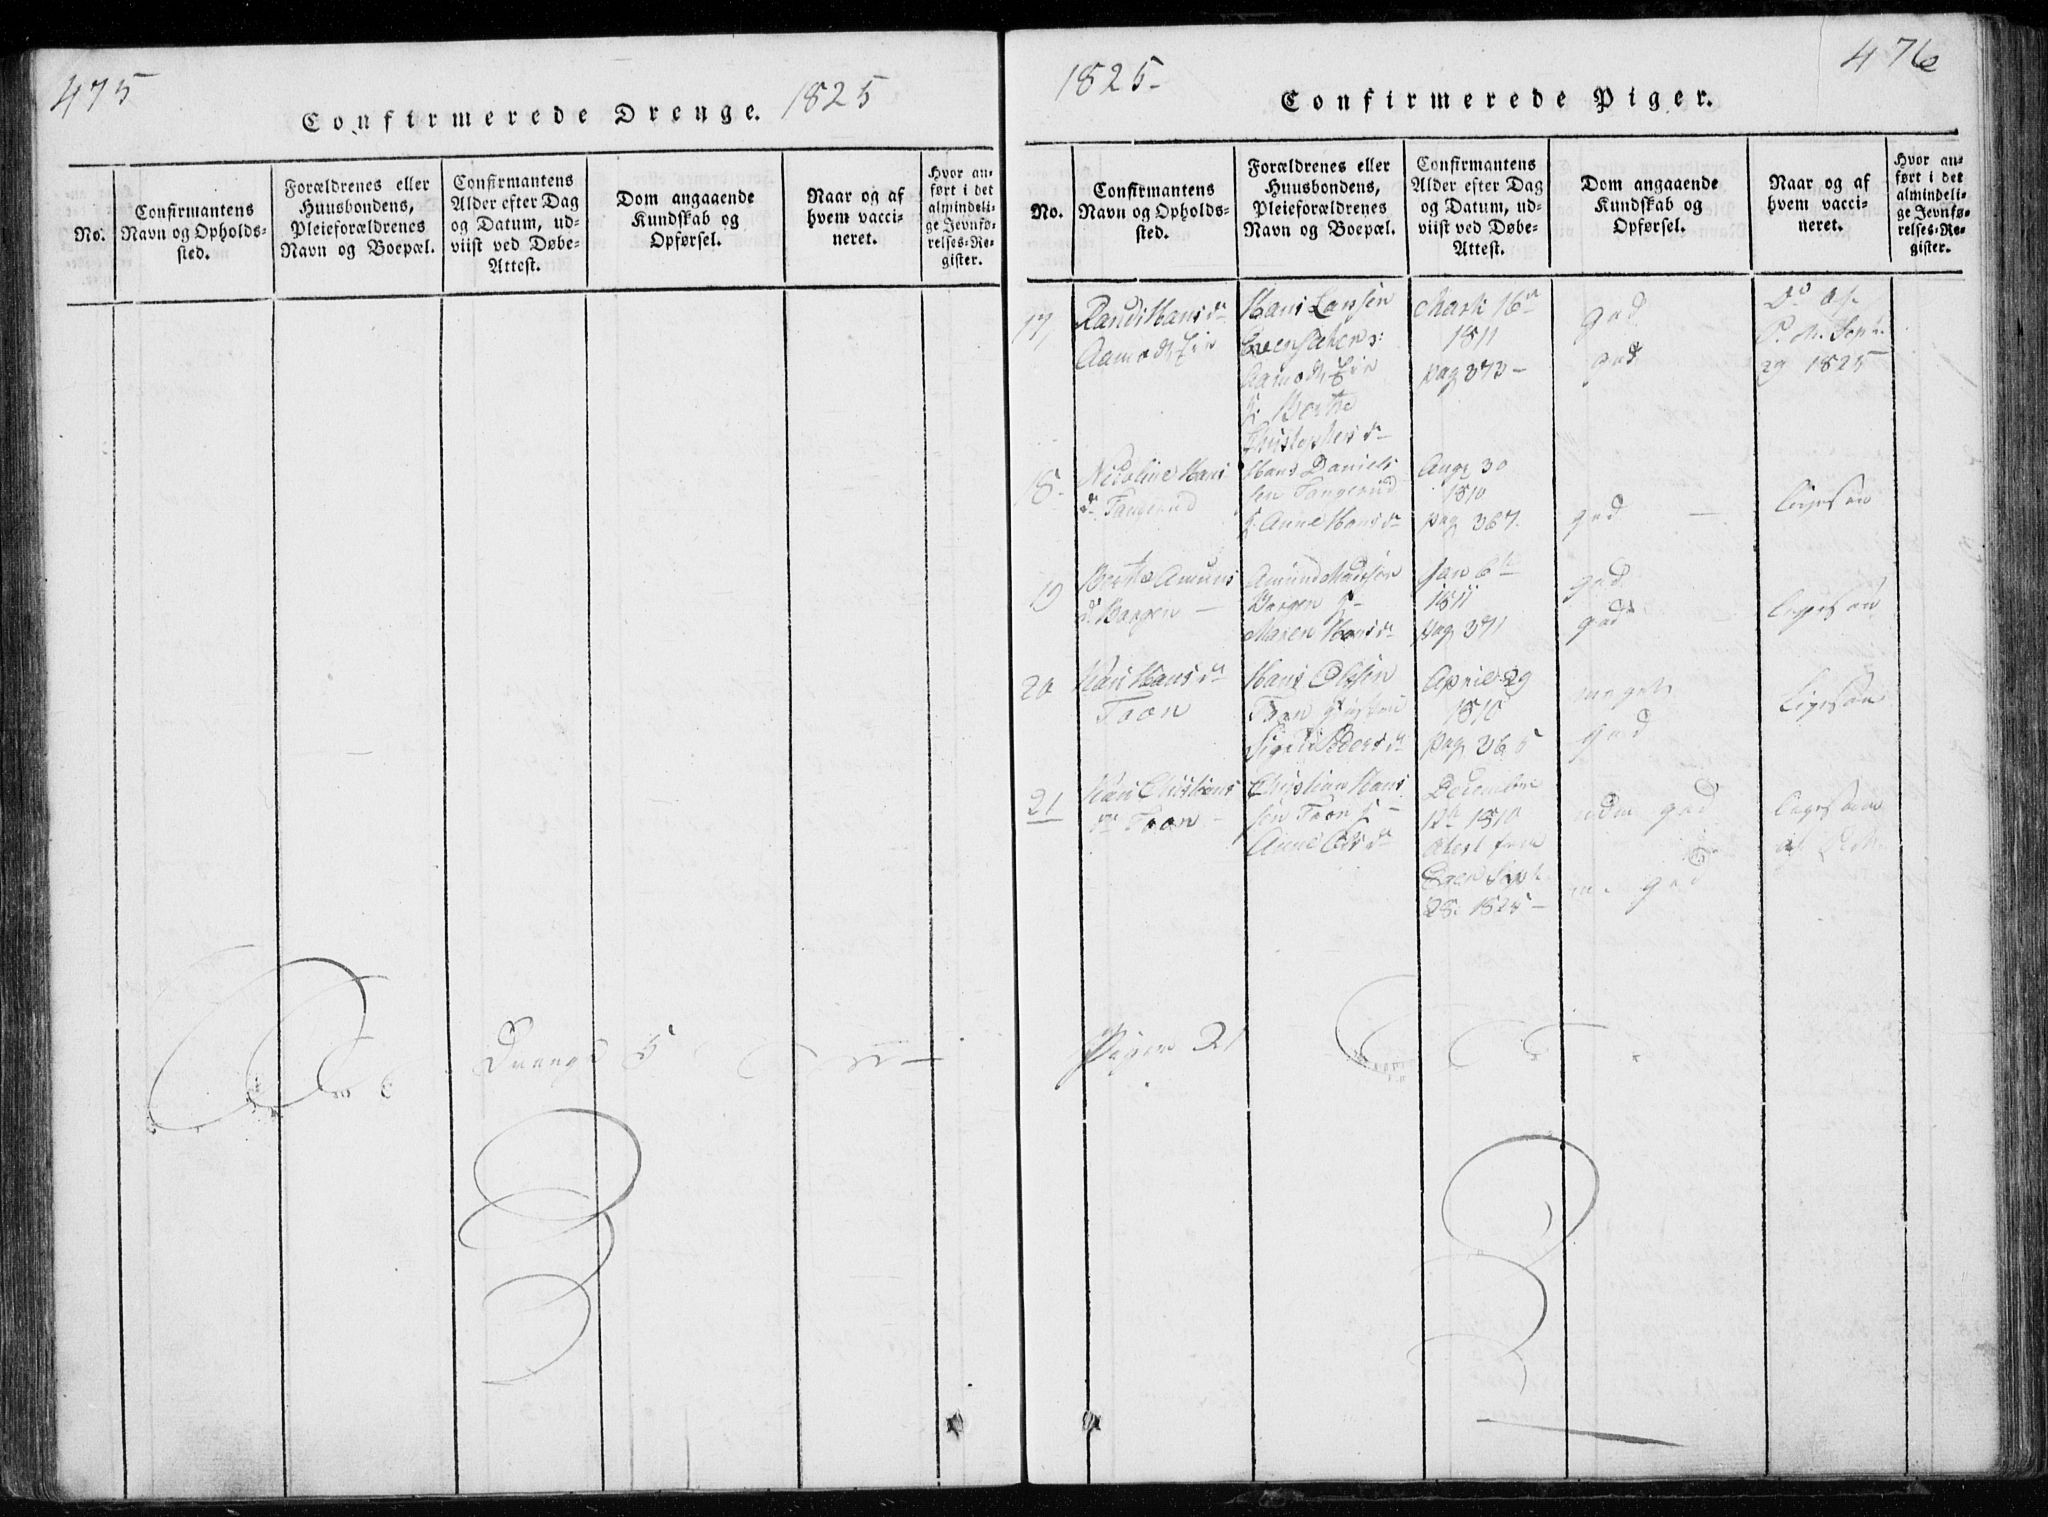 475
Confirmerede Drenge. 1825
No.
Confirmantens
Navn og Opholds-
sted.
Forældrenes eller
Huusbondens,
Pleieforældrenes
Navn og Boepæl.
Confirmantens
Alder efter Dag
og Datum, ud-
viist ved Døbe-
Attest.
Dom angaaende
Kundskab og
Opførsel.
Naar og af
hvem vacci-
neret.
Hvor an-
ført i det
almindeli-
ge Jevnfø-
relses-Re-
gister.
Drenge 5
476
1825-
Confirmerede Piger.
No.
Confirmantens
Navn og Opholds-
sted.
Forældrenes eller
Huusbondens,
Pleieforældrenes
Navn og Boepæl.
Confirmantens
Alder efter Dag
og Datum, ud-
viist ved Døbe-
Attest.
Dom angaaende
Kundskab og
Opførsel.
Naar og af
hvem vacci-
neret.
Hvor an-
ført i det
almindeli-
ge Jevnfø-
relses-Re-
gister.
17,
Randi Hans dr
Aamodt
Hans Larsen
Aamodt
Berthe
Christophers dr
Marti 16
1811
pag 373-
god
god
Do af
P. M. Sept.
29 1825
18-
Nicoline Hans
dr Tangerud
Hans Daniels
sen Tangerud
Anne Hans dr
Aug 30
1810
pag 367.
god -
ligesaa
19
Berthe Amuns
dr Borgen -
Amund Madsen
Borgen
Maren Hans dr
Jan 6
1811
pag 371
god
god
ligesaa
20
Kari Hans dr
Toon
Hans Olsen
Toon
Sigri Peders dr
April 29
1810
pag 365
god
ligesaa
21
Kari Christians
dr Toon -
Christian Hans
sen Toon
Anne Ols dr
December
12 1810
Attest fra
Sept.
28. 1825-
god
god
ligesaa
af
Piger 21